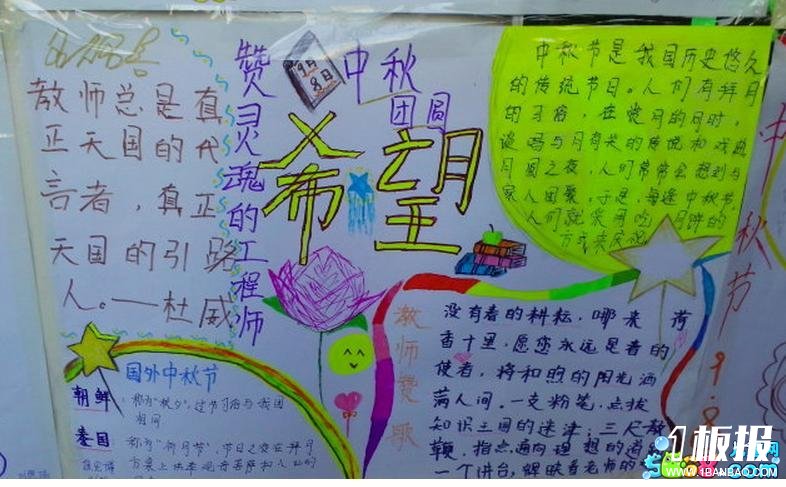 教师总是真
正天国的代
言者，真正
天国的引路
人。——杜威
赞灵魂的工程师
9月
8日
中秋
团圆
希望
中秋节是我国历史悠久
的传统节日。人们有拜月
的习俗，在赏月的同时，
谈唱与月有关的传说和戏曲
月圆之夜，人们常常会想到与
家人团聚。于是，每逢中秋节，
人们就采用吃月饼的
方式来庆祝
中秋节
9.8
国外中秋节
朝鲜：称为"秋夕"，过节习俗与我国
相同
泰国：称为"祈月节"，节日之夜在拜月
教师赞歌
没有春的耕耘，哪来荷
香十里，愿您永远是春的
使者，将和煦的阳光洒
满人间。一支粉笔，点拨
知识王国的迷津；三尺教
鞭，指点通向理想的道
一个讲台，辉映着老师的
1板报
WWW.1BANBAO.COM